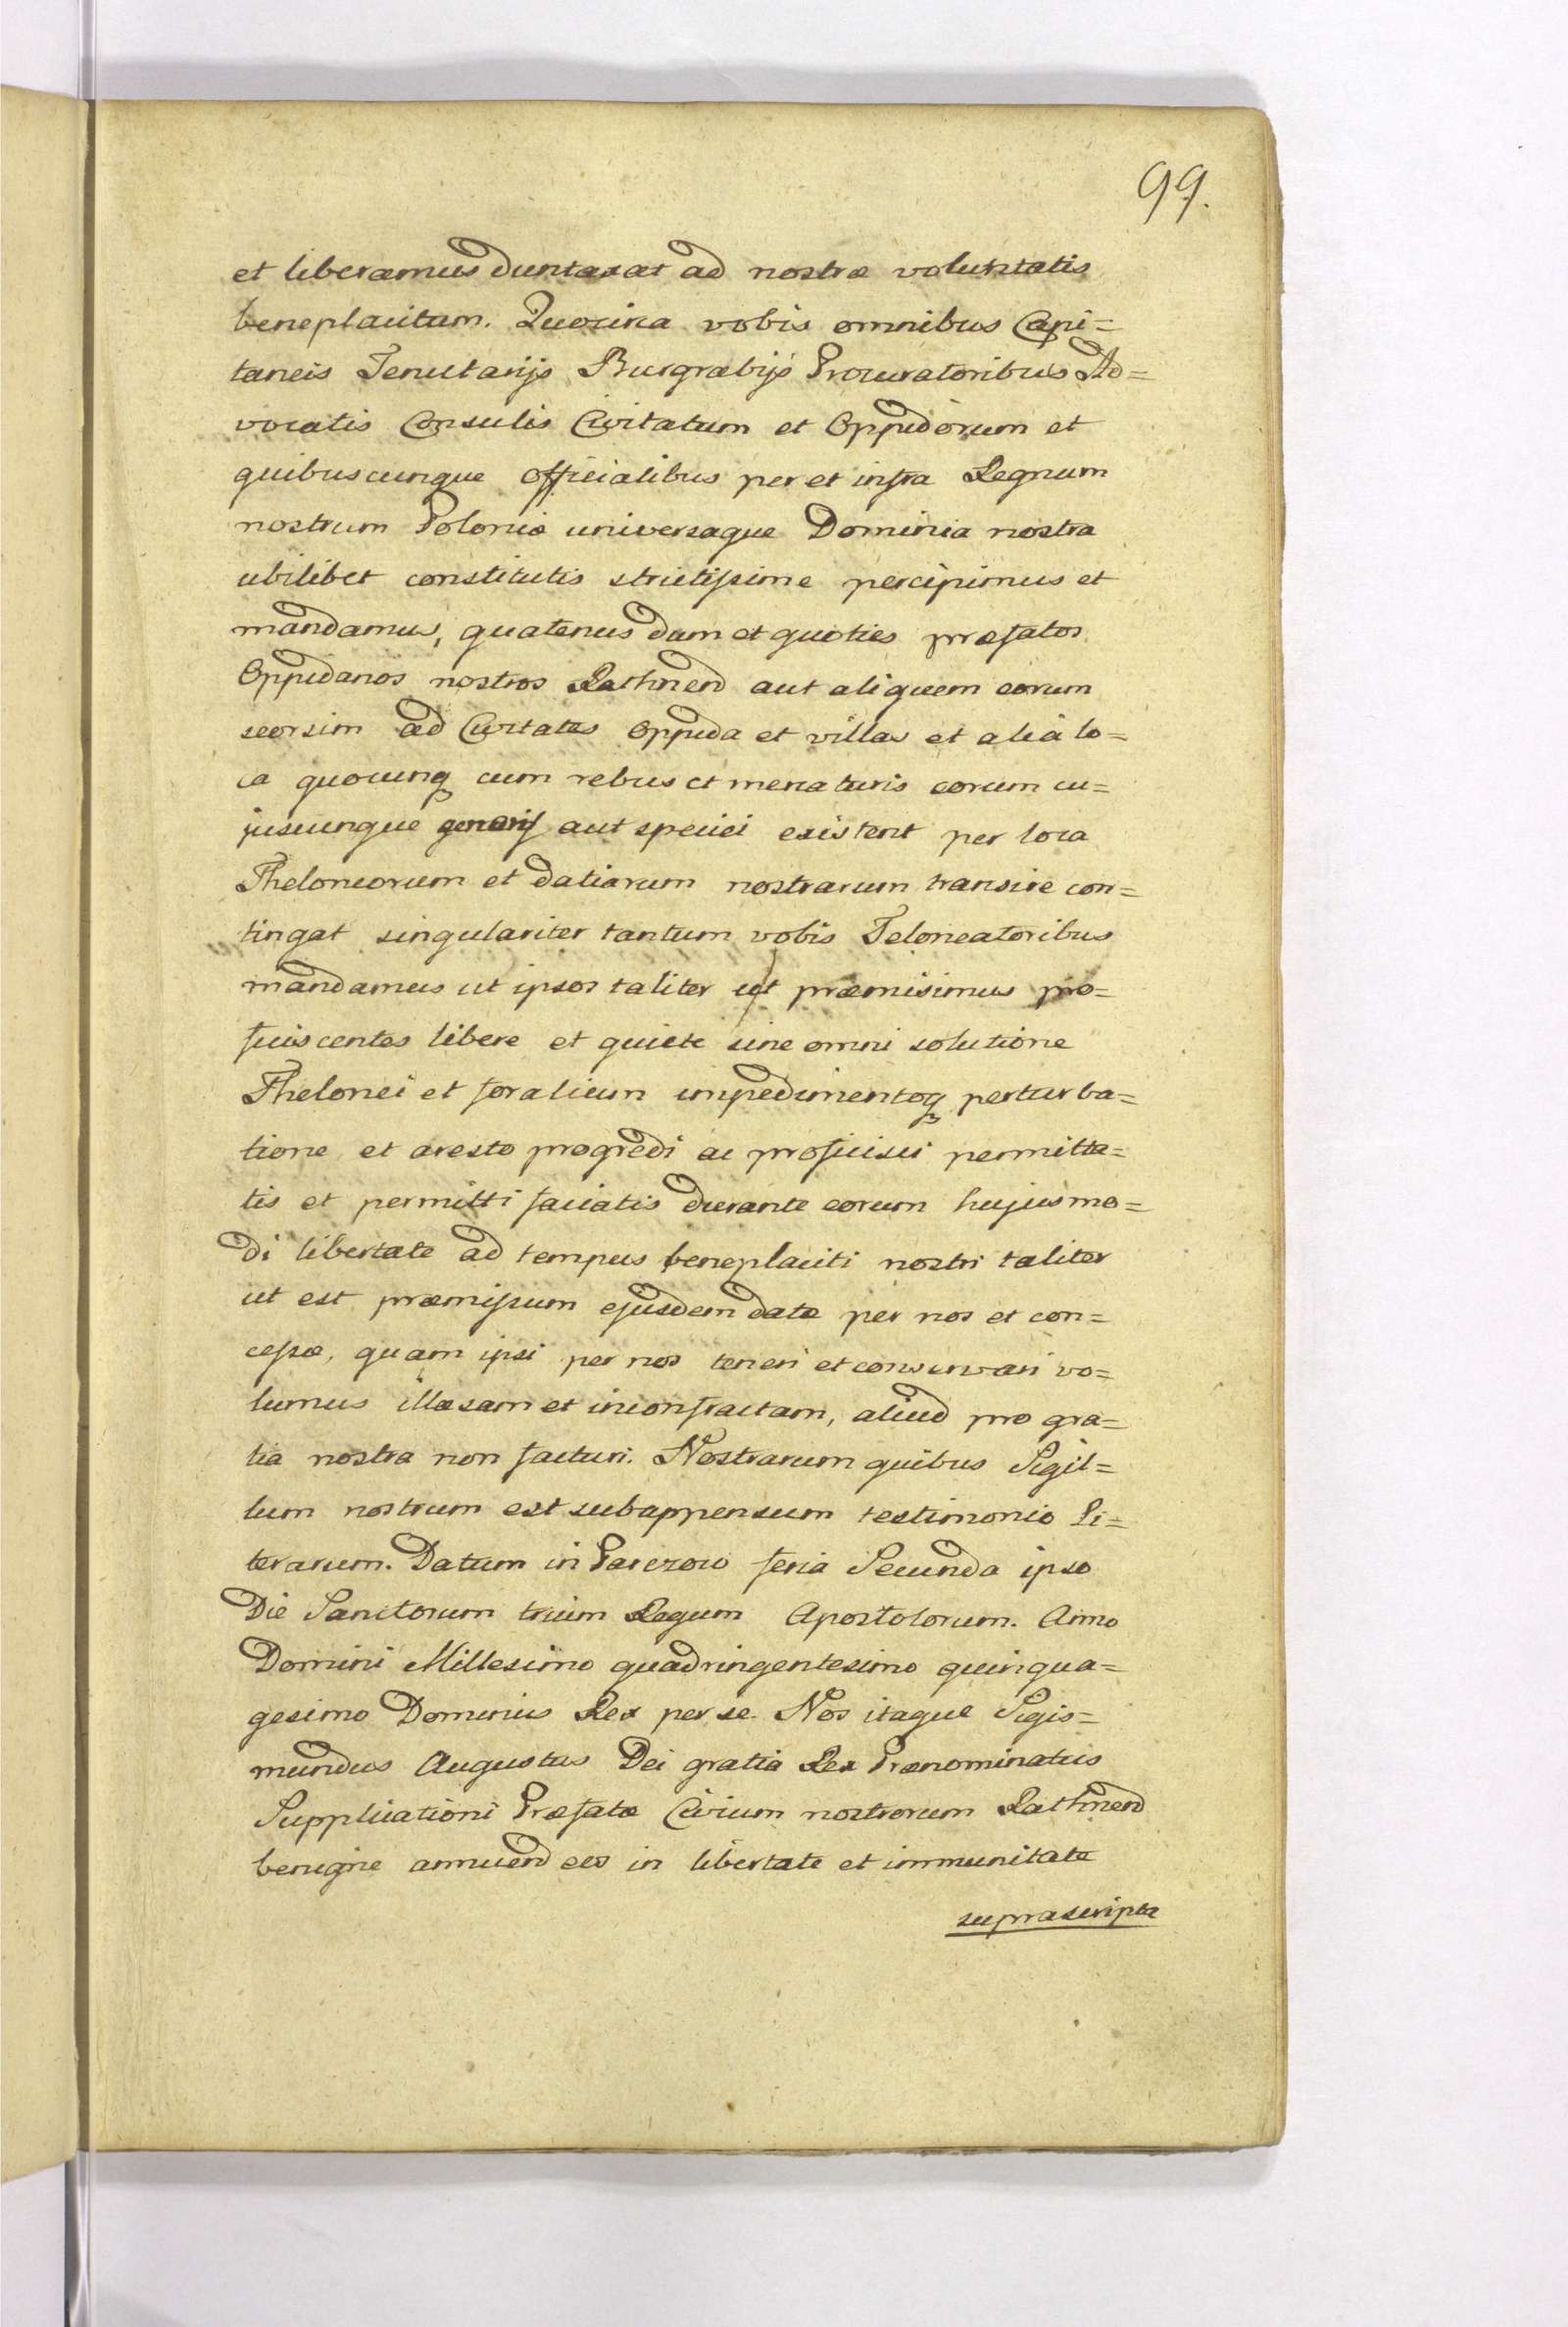 99.
et liberamus duntaxat ad nostræ voluntatis
beneplacitum. Quocirca vobis omnibus Capi=
taneis Tenutarijs Burgrabijs Procuratoribus Ad=
vocatis Consulis Civitatum et Oppidorum et
quibuscunque Officialibus per et infra Regnum
nostrum Poloniæ universaque Dominia nostra
ubilibet constitutis strictissime percipimus et
mandamus, quatenus dum et quoties præfatos
Oppidanos nostros Rathnen aut aliquem eorum
seorsim ad Civitates Oppida et villas et alia lo=
ca quocunq cum rebus et mercaturis eorum cu=
juscunque generis aut speciei existent per loca
Theloneorum et datiarum nostrarum transire con=
tingat singulariter tantum vobis Teloneatoribus
mandamus ut ipsos taliter ut præmisimus pro=
ficiscentes libere et quiete sine omni solutione
Thelonei et foralium impedimentoq perturba=
tione et aresto progredi ac proficisci permitta=
tis et permitti faciatis durante eorum hujusmo=
di libertate ad tempus beneplaciti nostri taliter
ut est præmissum ejusdem datæ per nos et con=
cessæ, quam ipsi per nos teneri et conservari vo=
lumus illæsam et inconfractam, aliud pro gra=
tia nostra non facturi. Nostrarum quibus Sigil=
lum nostrum est subappensum testimonio Li=
terarum. Datum in Parczow feria Secunda ipso
Die Sanctorum trium Regum Apostolorum. Anno
Domini Millesimo quadringentesimo quinqua=
gesimo Dominus Rex per se. Nos itaque Sigis=
mundus Augustus Dei gratia Rex Prænominatus
Supplicationi Præfatæ Civium nostrorum Rathnen
benigne annuend eos in libertate et immunitate
suprascripta